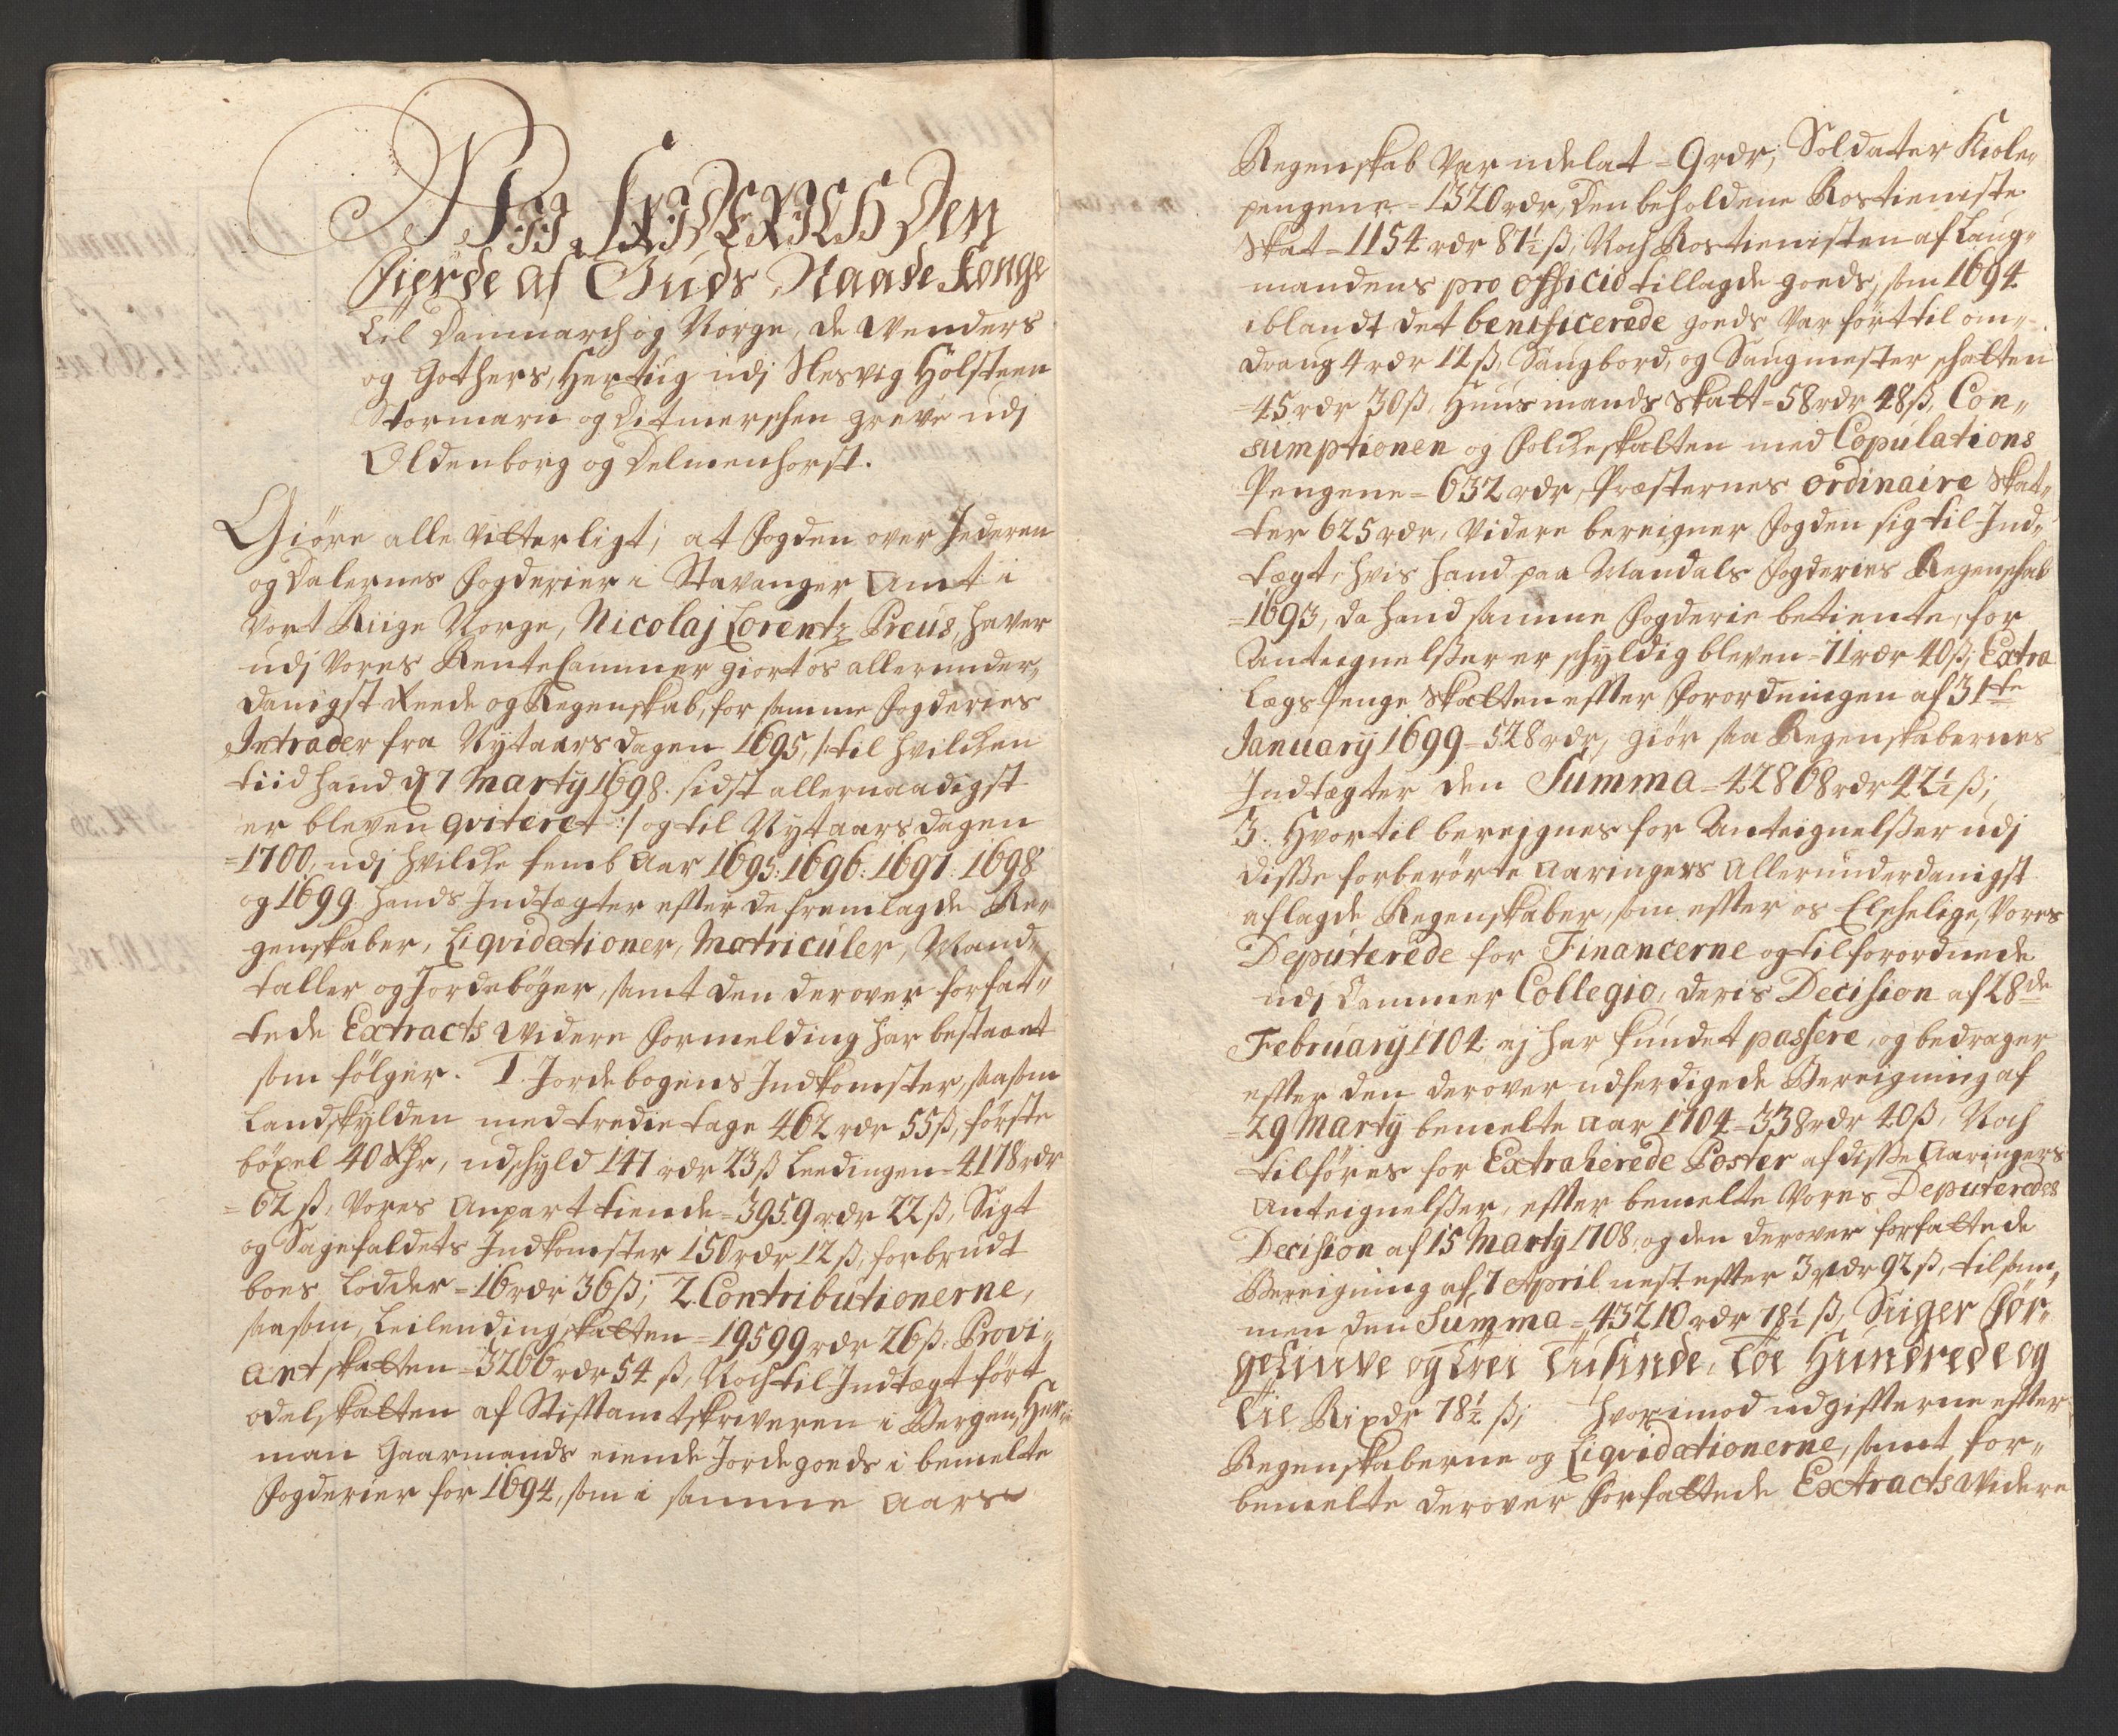 Wii FRIDERICH Den
Fierde af Guds Naade Konge
Til Danmarch og Norge, de Wenders
og Gothers, Hertug udj Slesvig Holsteen
Stormarn og Ditmerschen greve udj
Oldenborg og Delmenhorst.
Giöre alle vitterligt, at Fogden over Jederen
og Dalernes Fogderier i Stavanger Amt i
vort Riige Norge, Nicolaj Lorentz Preus, haver
udj vores Rente Cammer giort os allerunder,,
danigst Reede og Regenskab, for samme Fogderies
Intrader fra Nytaarsdagen 1695, /: til hvilcken
tiid hand d 7 Marty 1698. sidst allernaadigst
er bleven qviteret :/ og til Nytaarsdagen
=1700, udj hvilcke femb Aar 1695: 1696: 1697: 1698
og 1699. hands Indtægter efter de fremlagde Re,,
genskaber, Liqvidationer, Matriculer, Mand,,
taller og Jordebøger, samt den derover forfat,,
tede Extracts videre Formelding har bestaaet
som følger. 1. Jordebogens Indkomster, saasom
Landskylden med tredie tage 462 rdr 55 ß, første
böxel 40 rdr, udschyld 147 rdr 23 ß Leedingen = 4178 rdr
= 62 ß, vores Anpart tiende = 3959 rdr 22 ß, Sigt
og Sagefaldets Indkomster 150 rdr 12 ß, forbrudt
boes Lodder = 16 rdr 36 ß; 2. Contributionerne,
saasom, Leilendingskatten = 19599 rdr 26 ß. Provi,,
antskatten = 3266 rdr 54 ß, Noch til Indtægt fört
odelskatten af Stifftamtskriveren i Bergen, Her,,
man Gaarmands eiende Jordegoeds i bemelte
Fogderier for 1694, som i samme Aars
Regenskab var udelat = 9 rdr, Soldater Kiole,,
pengene = 1320 rdr, den beholdene Rostieniste
Skat = 1154 rdr 87½ ß, Noch Rostienisten af Laug,,
mandens pro officio tillagde goeds, som 1694
iblandt det benificerede goeds var fört til om,,
drang 4 rdr 12 ß, Saugbord, og Saugmester schatten
=45 rdr 30 ß, Huusmands skatt = 58 rdr 48 ß, Con,,
sumptionen og Folcheskatten med Copulations
Pengene = 632 rdr, Præsternes ordinaire Skat,,
ter 625 rdr, videre bereigner Fogden sig til Ind,,
tægt, hvis hand paa Mandals Fogderies Regenschab
=1693, da hand samme Fogderie betiente, for
Anteignelsser er schyldig bleven = 71 rdr 40 ß; Extra
Lægs penge Skatten effter Forordningen af 31te
January 1699 = 528 rdr, giör saa Regenskabernes
Indtægter den Summa = 42868 rdr 42½ ß;
3. Hvortil bereignes for Anteignelsser udj
disse forberörte Aaringers Allerunderdanigst
aflagde Regenskaber, som effter os Elschelige, Vores
Deputerede for Financerne og tilforordnede
udj Cammer Collegio, deris Decision af 28de
February 1704. ej har kundet passere, og bedrager
effter den derover udferdigede Bereigning af
=29 Marty bemelte Aar 1704 = 338 rdr 40 ß, Noch
tilföres for Extraherede Poster af disse Aaringers
Anteignelsser, effter bemelte Vores Deputeredes
Decision af 15 Marty 1708, og den derover forfattede
Bereigning af 7 April nest effter 3 rdr 92 ß, tilsam,,
men den Summa = 43210 rdr 78½ ß, Siiger For,,
getiuve og Trei Tusinde, Toe Hundrede og
Tie Rixdr 78½ ß; Hvorimod udgiffterne effter
Regenskaberne og Liqvidationerne, samt for,,
bemelte derover forfattede Extracts videre